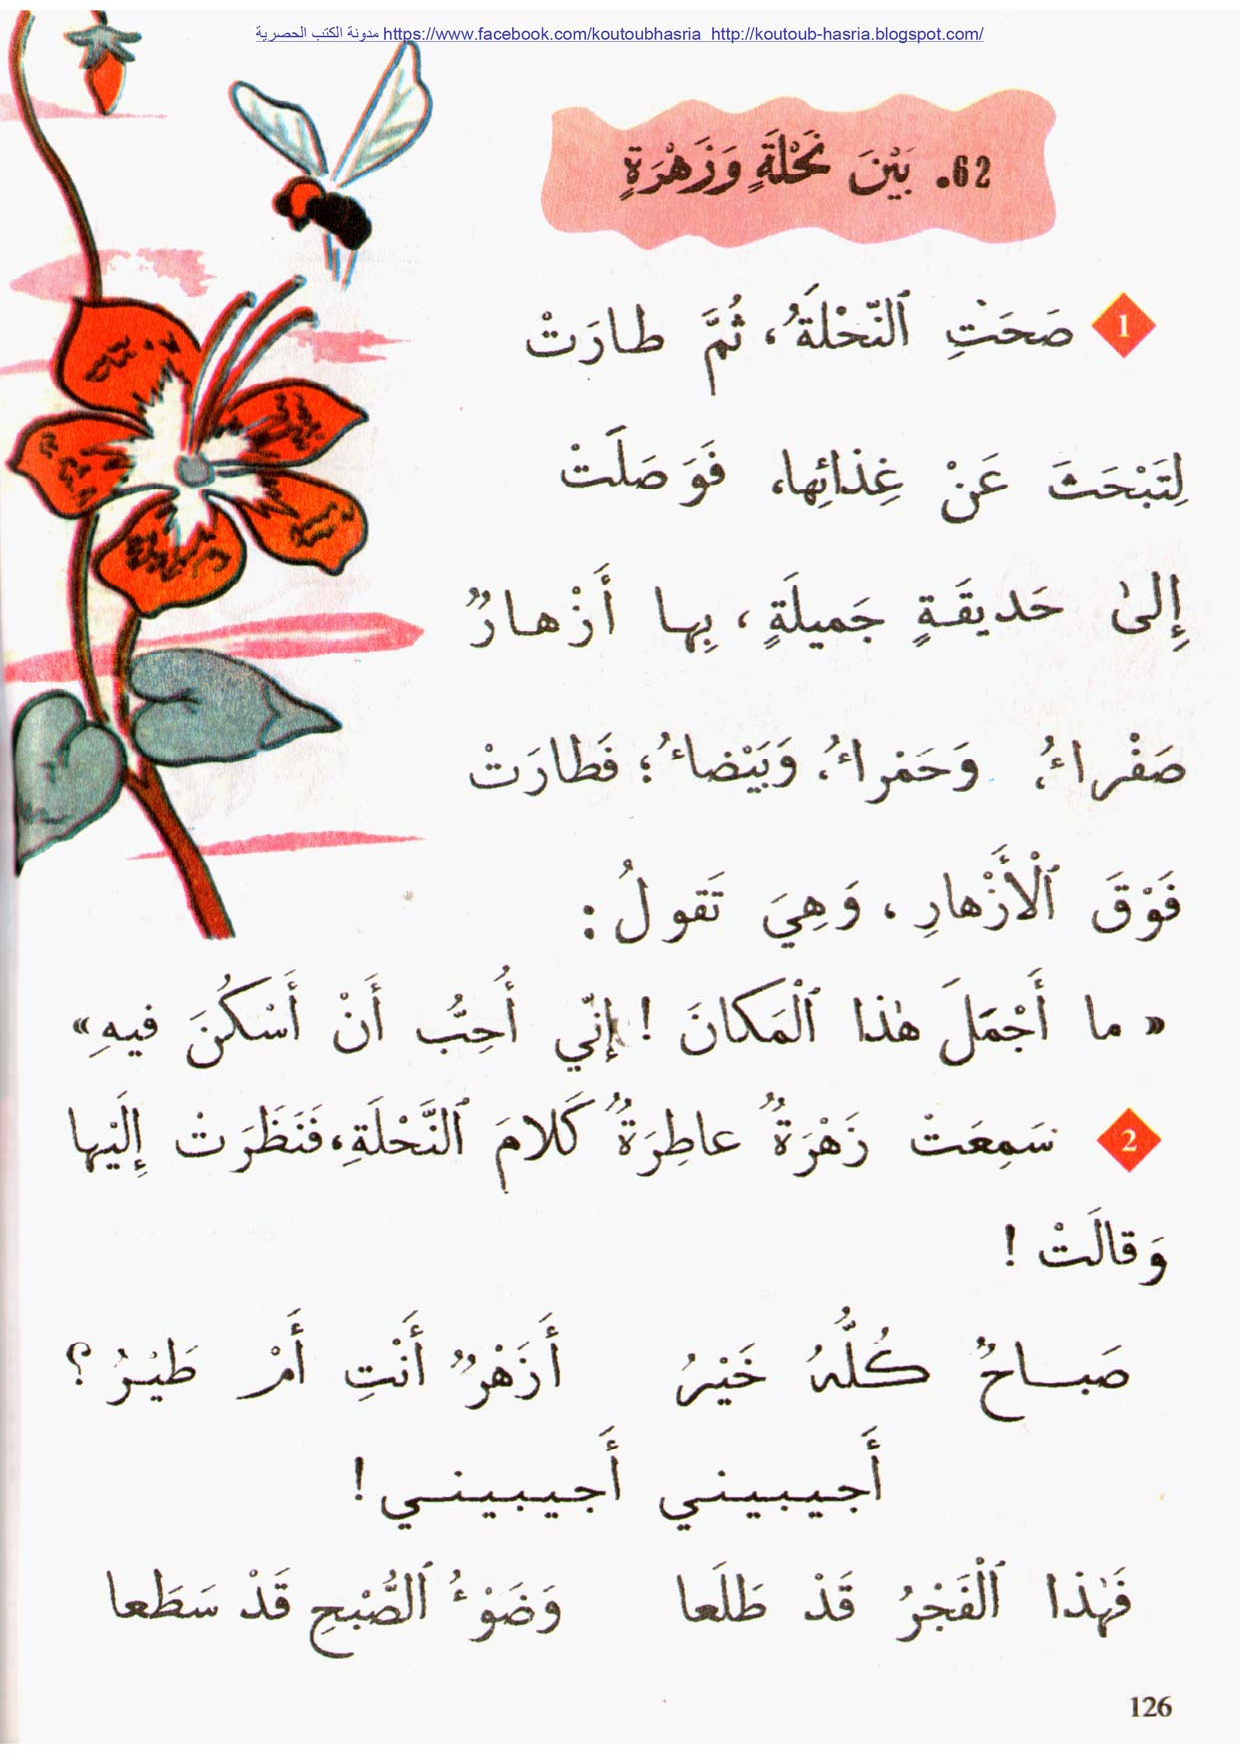 مدونة الكتب الحصرية https://www.facebook.com/koutoubhasria http://koutoub-hasria.blogspot.com/
62. بَيْنَ نَحْلَةٍ وَزَهْرَةٍ
1 صَحَتِ ٱلنَّحْلَةُ، ثُمَّ طارَتْ
لِتَبْحَثَ عَنْ غِذائِها، فَوَصَلَتْ
إِلىٰ حَديقَةٍ جَميلَةٍ، بِها أَزْهارٌ
صَفْراءُ، وَحَمْراءُ، وَبَيْضاءُ؛ فَطارَتْ
فَوْقَ ٱلْأَزْهارِ، وَهِيَ تَقولُ:
« ما أَجْمَلَ هٰذا ٱلْمَكانَ! إِنّي أُحِبُّ أَنْ أَسْكُنَ فيهِ»
2 سَمِعَتْ زَهْرَةٌ عاطِرَةٌ كَلامَ ٱلنَّحْلَةِ، فَنَظَرَتْ إِلَيْها
وَقالَتْ!
صَباحٌ كُلُّهُ خَيْرُ أَزَهْرٌ أَنْتِ أَمْ طَيْرُ؟
أَجيبيني أَجيبيني!
فَهٰذا ٱلْفَجْرُ قَدْ طَلَعا وَضَوْءُ ٱلصُّبْحِ قَدْ سَطَعا
126